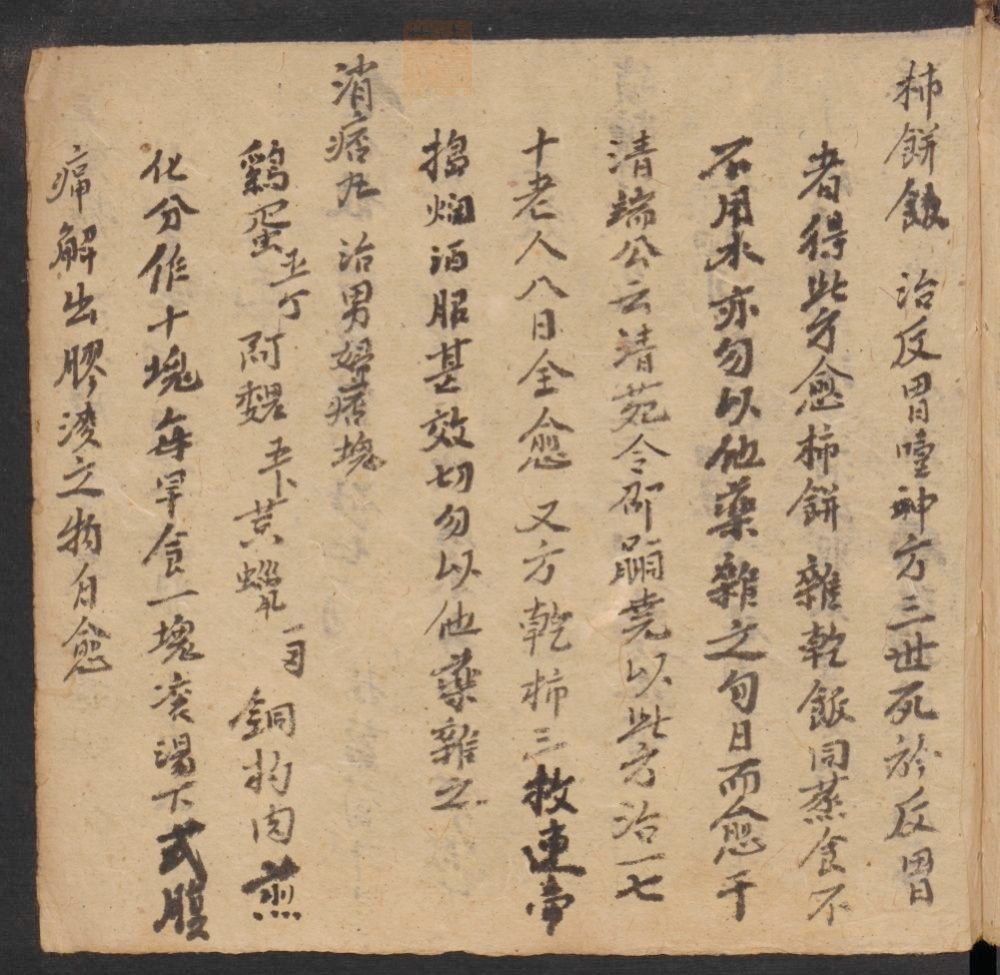 柿餅飯 治反胃噎神方三世死於反胃
者得此方愈柿餅雜乾飯同蒸食不
不用水亦勿以他藥雜之旬日而愈干
清端公云清苑令邵嗣堯以此方治一七
十老人八日全愈 又方乾柿三枚連蒂
搗爛酒服甚效切勿以他藥雜之
消痞丸 治男婦痞塊
鷄蛋五个 阿魏五卜 黃蠟一目 銅杓內煎
化分作十塊每早食一塊凌湯下或腹
痛解出膠凌之物自愈